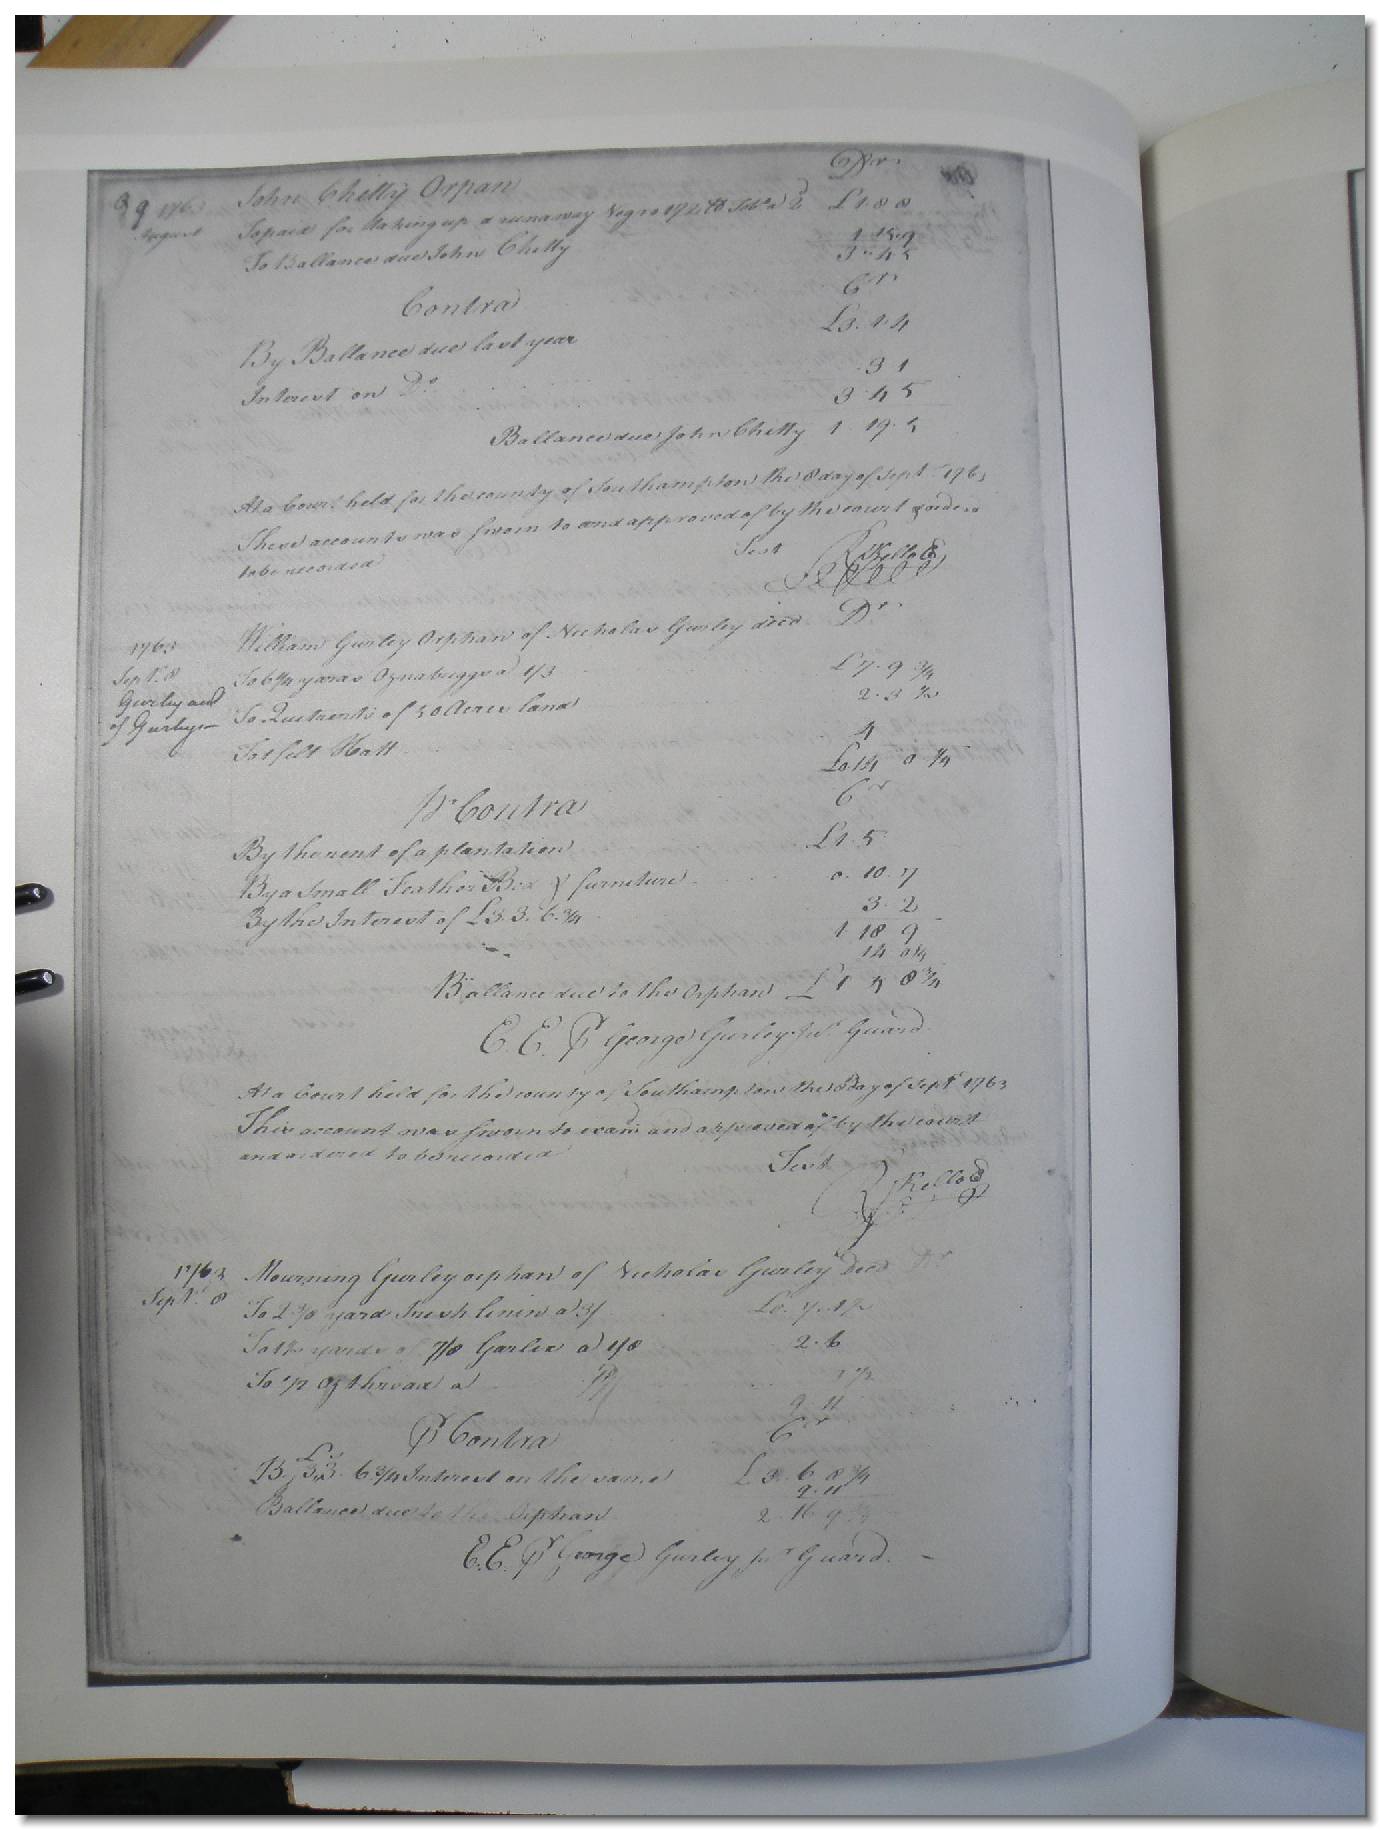 39 1763 John Chitty Orpan Dr.
August To paid for taking up a runaway Negro 172 Tobo a 2 £1.8.8
To Ballance due John Chitty 1.15.9
3.4.5
Contra Cr
By Ballance due last year £3.1.4
Interest on Do 3 1
3.4.5
Ballance due John Chitty 1.19.5
At a Court held for the county of Southampton the 8 day of Sept 1763
These accounts was sworn to and approved of by the court & orderd
to be recorded Test Kello
1763 William Gurley Orphan of Nicholas Gurley decd Dr.
Sept. 8 To 6¼ yards Oznabriggs a 1/3 £7.9¾
Gurley acct To Quitrents of 50 Acres land 2.3½
of Gurley To 1 felt Hatt 4
£0.14 0¼
Pr Contra Cr
By the rent of a plantation £1.5
By a small Feather Bed & furniture 0.10.7
By the Interest of £3.3.6¾ 3.2
1 18 9
14 0¼
Ballance due to the Orphan £1 4 8¾
E. E. Pr George Gurley Junr Guard.
At a Court held for the county of Southampton the 8 day of Sept 1763
This account was sworn to exam and approved of by the court
and ordered to be recorded Test
Kello
1763 Mourning Gurley orphan of Nicholas Gurley Decd Dr
Sept. 8 To 2 3/8 yard Irish linin a 3/ £0.7.1½
To 1½ yards of 7/8 Garlix a 1/8 2.6
To ½ Oz thread a 1½
9 11
Pr Contra Cr
By £3.3.6¾ Interest on the same £3.6.8¾
9.11
Ballance due to the Orphan 2.16 9¾
E.E. Pr George Gurley Junr Guard.